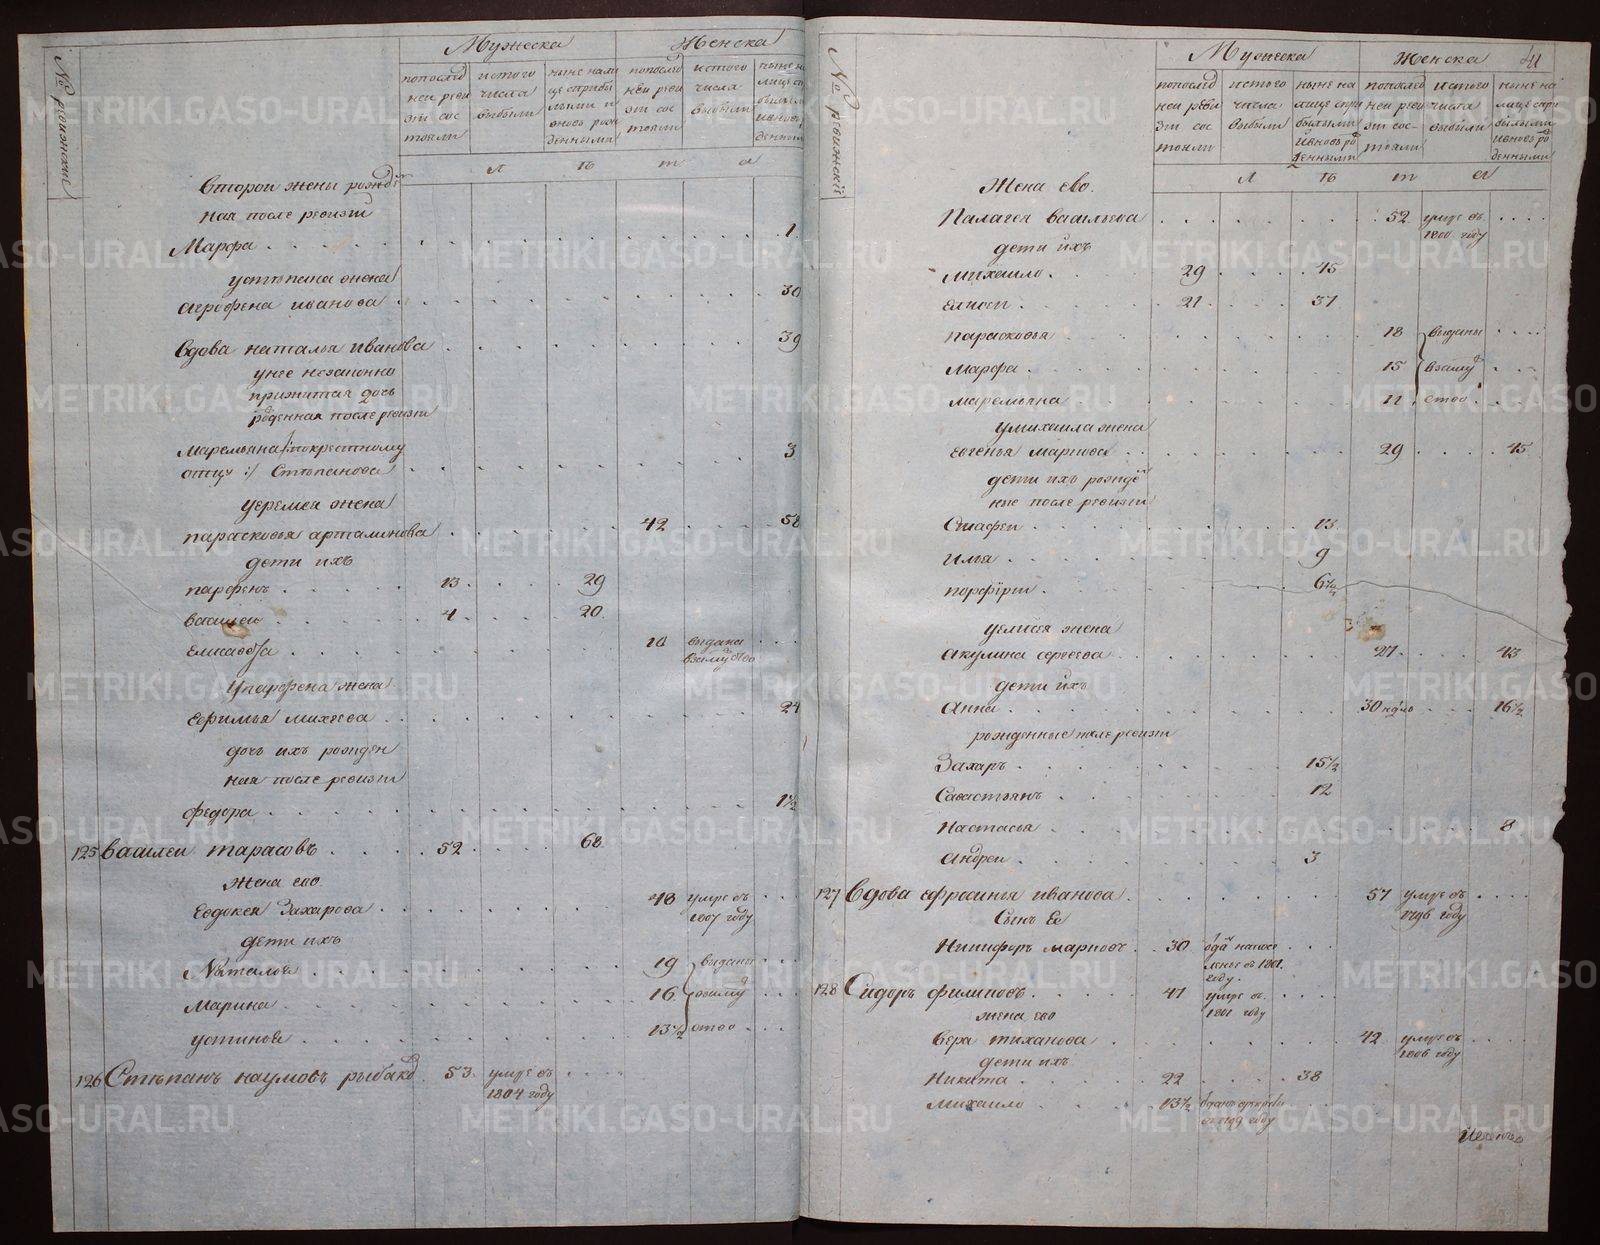 № ревижский
Мужеска
Женска
попослед
ней реви
зіи сос
тояли
изтого
числа
выбыли
ныне нали
це
вновь рож
денными
попослед
ней реви
зіи сос
тояли
изтого
числа
выбыли
л ѣ т а
Второй жены рожде
ная после ревизіи
Марфа 1
устѣпана жена
агрофена иванова 30
Вдова наталья Иванова 39
унее незаконно
прижитая дочь
рожденная после ревизіи
маремьяна /: покрестному
отцу :/ Стѣпанова 3
уеремея жена
парасковья артамонова 42 58
дети ихъ
парфенъ 13 29
василеи 4 20
елисавефа 10 выдана
взамужство
упарфена жена
Ефимья михеева 24
дочь ихъ рожден
ная после ревизіи
федора 1½
125 Василеи тарасовъ 52 68
Жена ево
Евдокея Захарова 48 умре въ
1807 году
дети ихъ
Наталья 19 выданы
Марина 16 взамуж
устинья 13½ ство
126 Стѣпанъ наумовъ рыбаковъ 53 умре въ
1804 году
№ ревижскій
Мужеска
Женска
41
попослед
ней реви
зіи сос
тояли
изтого
числа
выбыли
ныне на
лице при
былыми
ивновь ро
жденными
попослед
ней реви
зіи сос-
тояли
изтого
числа
выбыли
ныне на
лице при
былыми
ивновь ро
жденными
л ѣ т а
Жена ево.
Палагея васильева 52 умре въ
1800 году
дети ихъ
михаило 29 45
елисеи 21 37
парасковья 18 выданы
марфа 15 взамуж
маремьяна 11 ство
умихаила жена
Евгенья маркова 29 45
дети ихъ рожде
ные после ревизіи
Елисеи 13
илья 9
порфірии
уелисея жена
акулина сергеева 27 43
дети ихъ
анна 30 нѣдль 16½
рожденные после ревизіи
Захаръ 15½
Савастьянъ 12
Настасья 8
андреи 3
127 Вдова ефросинья иванова 57 умре въ
1796 году
Сынъ Ее
Никифоръ марковъ 30 одан напосе
ленье въ 1801.
году
128 Сидоръ филиповъ 41 умре въ
1801 году
жена ево
вера тиханова 42 умре въ
1806 году
дети ихъ
Никита 22 38
михаило 13½ отданъ врекруты
въ 1799 году